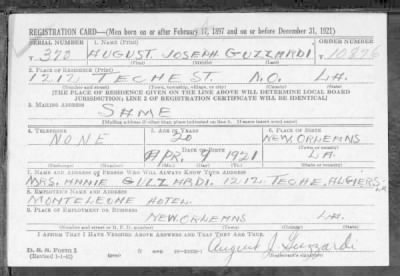 REGISTRATION CARD—(Men born on or after February 17, 1897 and on or before December 31, 1921)
SERIAL NUMBER 1. NAME (Print) ORDER NUMBER
T 370 AUGUST JOSEPH GUZZARDI 10876
2. PLACE OF RESIDENCE (Print)
1212 TECHE ST. N.O. LA.
(Number and street) (Town, township, village, or city) (County) (State)
[THE PLACE OF RESIDENCE GIVEN ON THE LINE ABOVE WILL DETERMINE LOCAL BOARD
JURISDICTION; LINE 2 OF REGISTRATION CERTIFICATE WILL BE IDENTICAL]
3. MAILING ADDRESS
SAME
[Mailing address if other than place indicated on line 2. If same insert word same]
4. TELEPHONE 5. AGE IN YEARS 6. PLACE OF BIRTH
NONE 20 NEW ORLEANS
DATE OF BIRTH (Town or county)
APR. 9 1921 LA.
(Exchange) (Number) (Mo.) (Day) (Yr.) (State or country)
7. NAME AND ADDRESS OF PERSON WHO WILL ALWAYS KNOW YOUR ADDRESS
MRS. ANNIE GUZZARDI. 1212 TECHE, ALGIERS LA
8. EMPLOYER'S NAME AND ADDRESS
MONTELEONE HOTEL
9. PLACE OF EMPLOYMENT OR BUSINESS
NEW ORLEANS LA.
(Number and street or R. F. D. number) (Town) (County) (State)
I AFFIRM THAT I HAVE VERIFIED ABOVE ANSWERS AND THAT THEY ARE TRUE.
D. S. S. Form 1
(Revised 1-1-42) (over) August J. Guzzardi
(Registrant's signature)